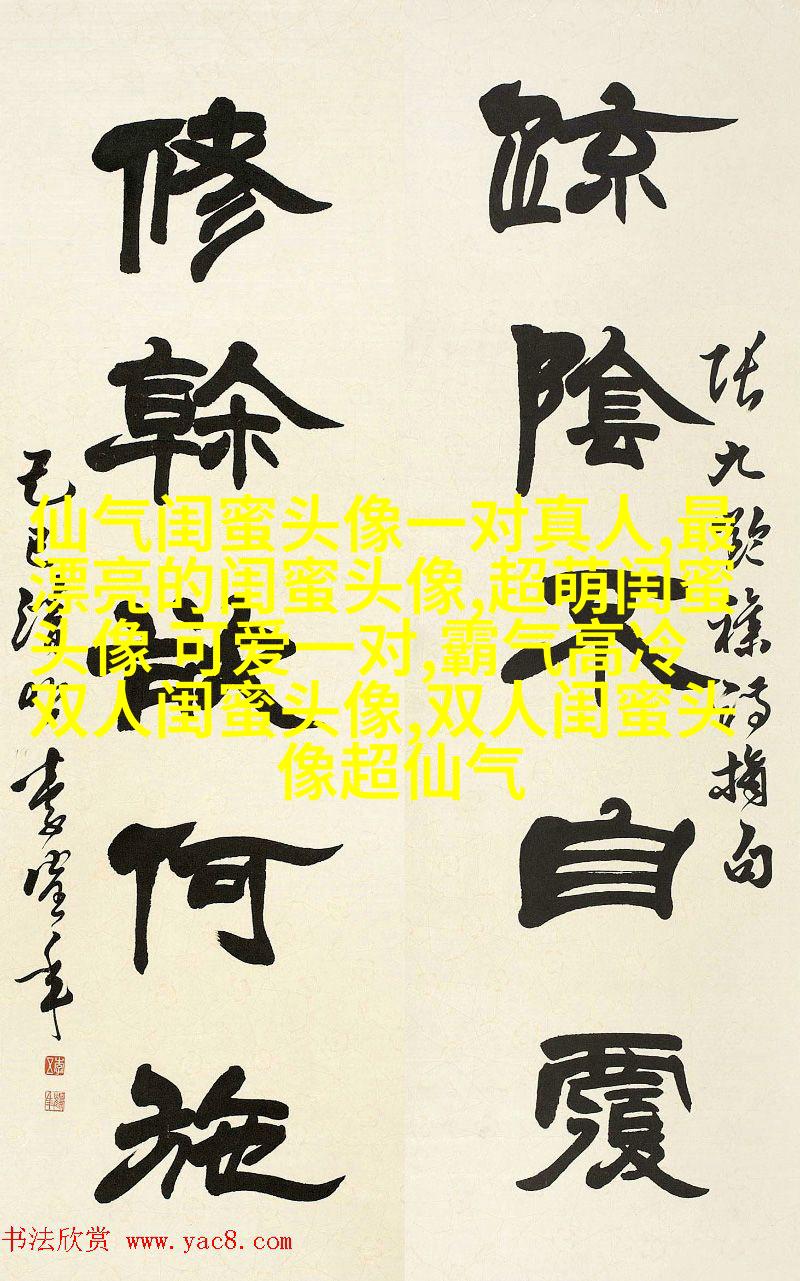 張九齡雜詩摘句
疎陰不自覆
修榦欲何施
己巳清明
仙气闺蜜头像一对真人,最
漂亮的闺蜜头像,超萌闺蜜
头像 可爱一对,霸气高冷
双人闺蜜头像,双人闺蜜头
像超仙气
书法欣赏 www.yac8.com